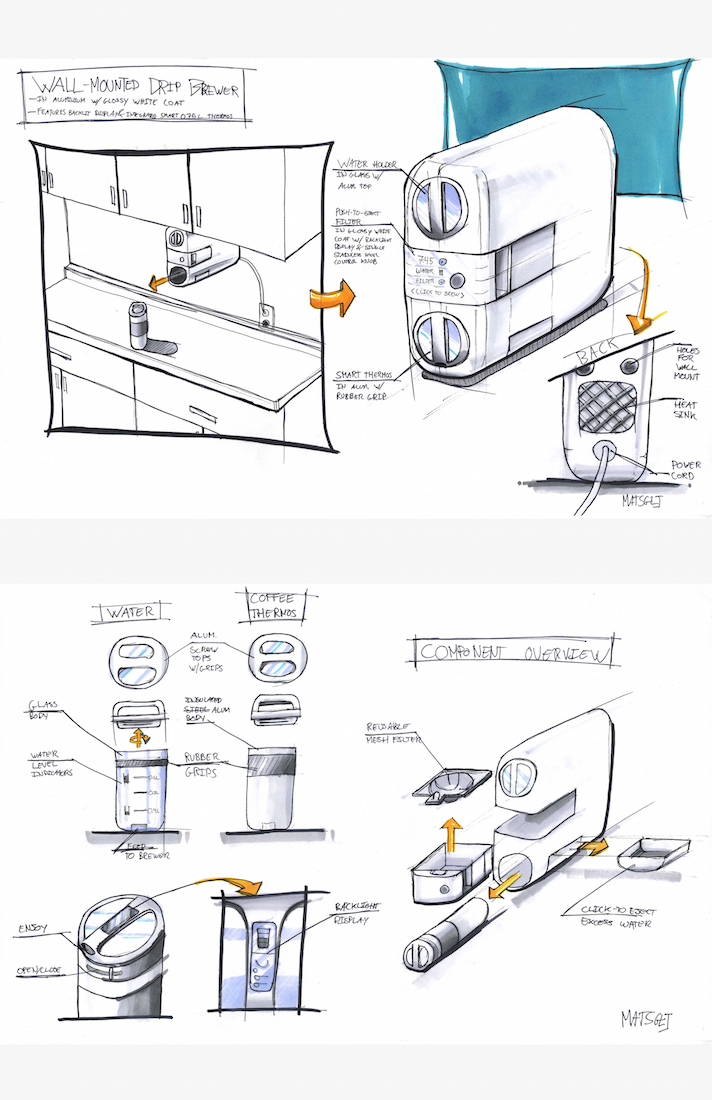 WALL-MOUNTED DRIP BREWER
- IN ALUMINIUM W/ GLOSSY WHITE COAT
- FEATURES BACKLIT DISPLAY & INTEGRATED SMART 0.75 L THERMOS
WATER HOLDER
IN GLASS W/
ALUM TOP
PUSH-TO-EJECT
FILTER
IN GLOSSY WHITE
COAT W/ BACKLIGHT
DISPLAY & SINGLE
STAINLESS STEEL
CONTROL KNOB
7:45
WATER
FILTER
(CLICK TO BREW)
SMART THERMOS
IN ALUM. W/
RUBBER GRIP.
BACK
HOLES
FOR
WALL
MOUNT
HEAT
SINK
POWER
CORD
MATSGEJ
WATER
COFFEE
THERMOS
ALUM.
SCREW
TOPS
W/GRIPS
GLASS
BODY
INSULATED
STEEL ALUM
BODY
WATER
LEVEL
INDICATORS
RUBBER
GRIPS
FEED
TO BREWER
ENJOY
OPEN/CLOSE
BACKLIGHT
DISPLAY
COMPONENT OVERVIEW
REUSABLE
MESH FILTER
CLICK-TO EJECT
EXCESS WATER
MATSGEJ